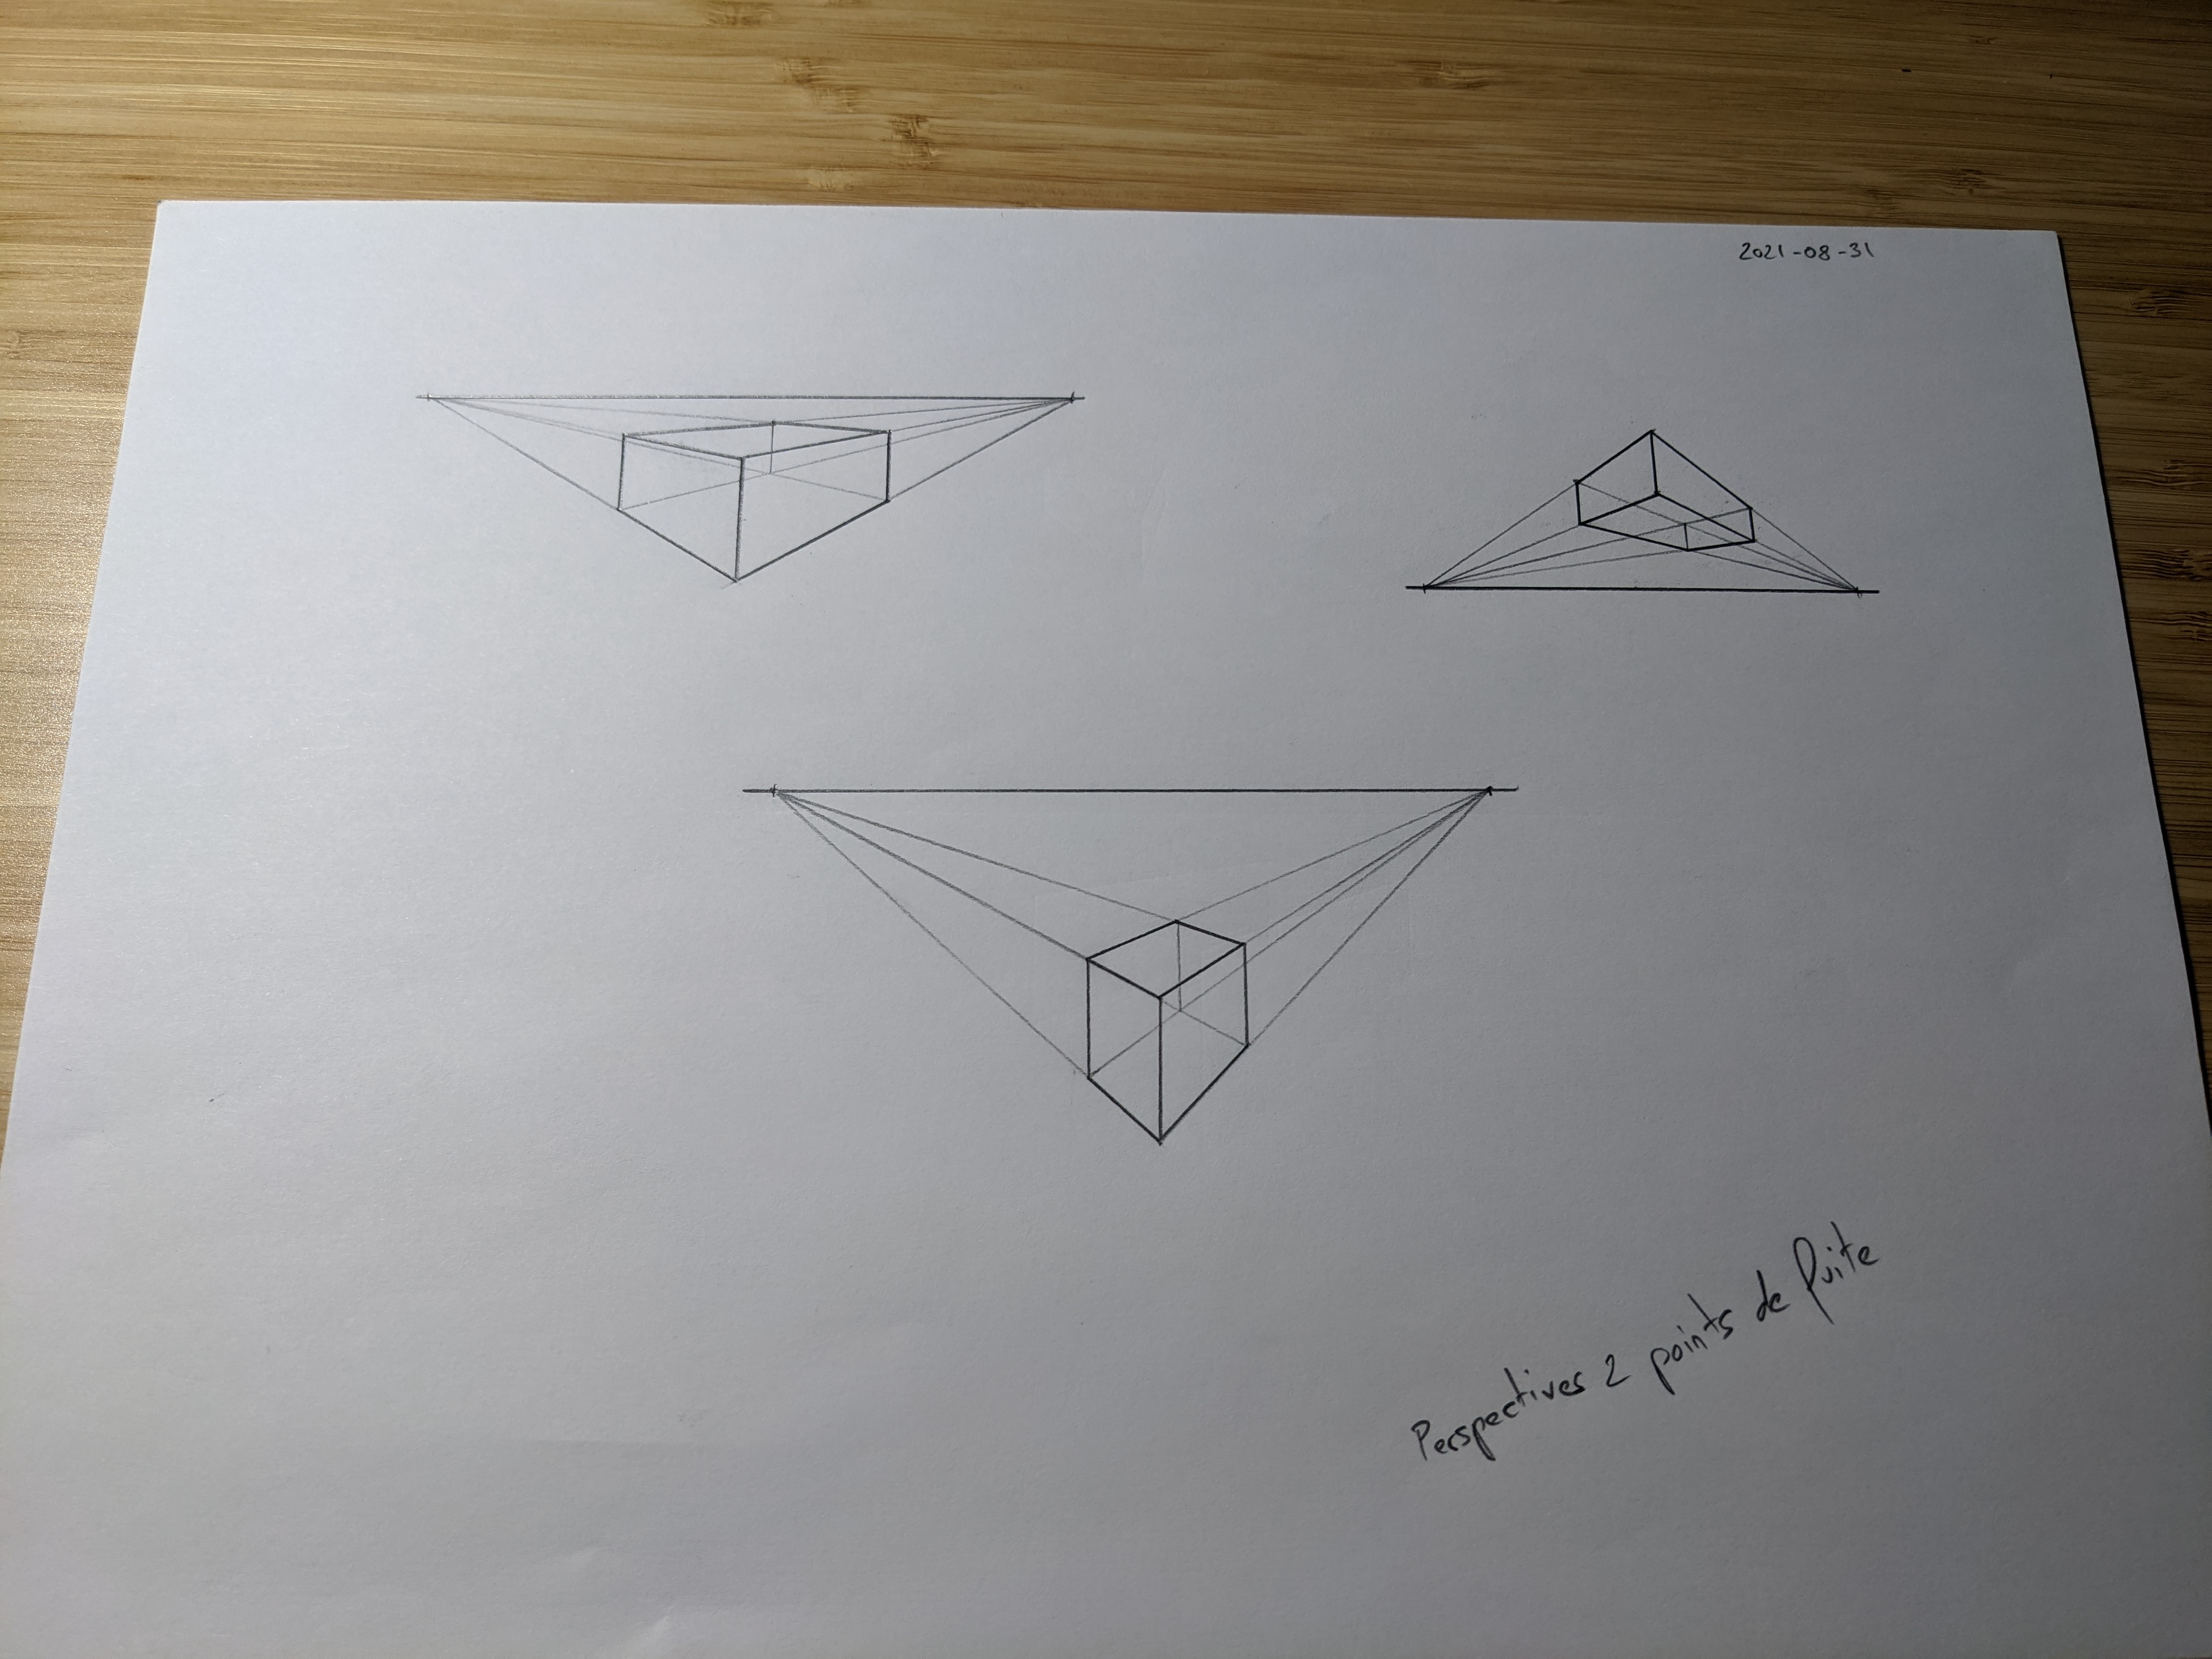 2021-08-31
Perspectives 2 points de fuite